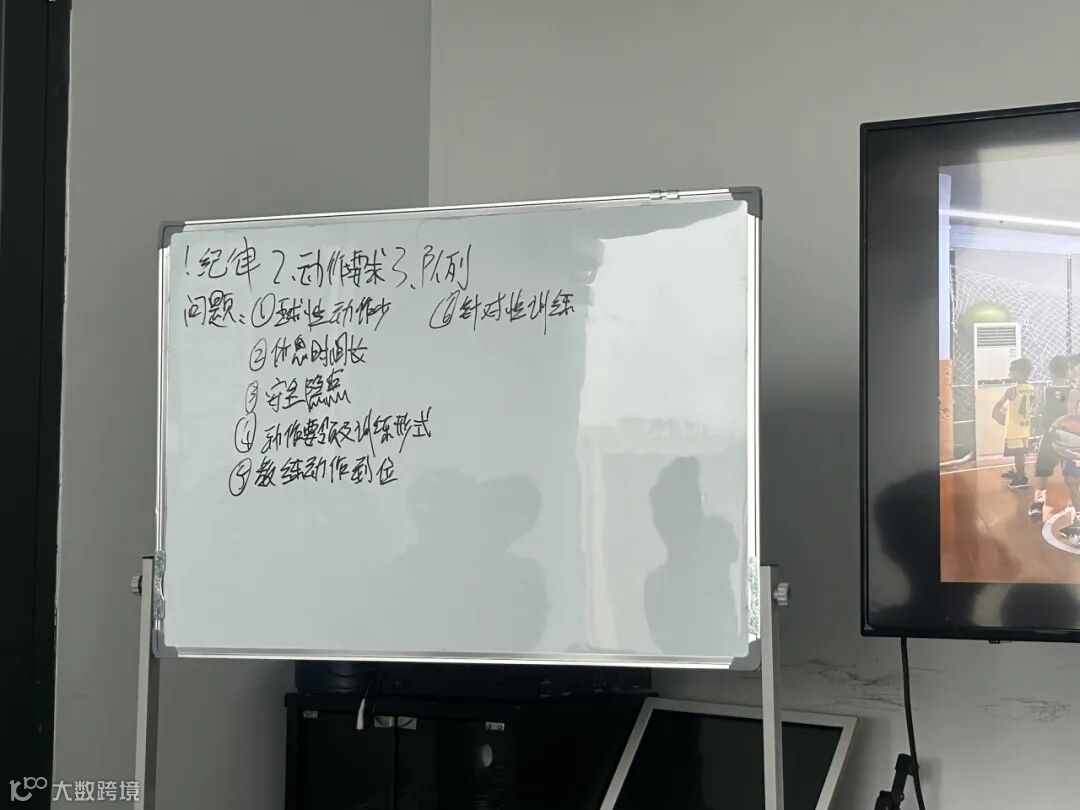 1纪律 2、动作要求 3、队列
问题：①球性动作少 ⑥针对性训练
②休息时间长
③安全隐患
④动作要领及训练形式
⑤教练动作到位
大数跨境